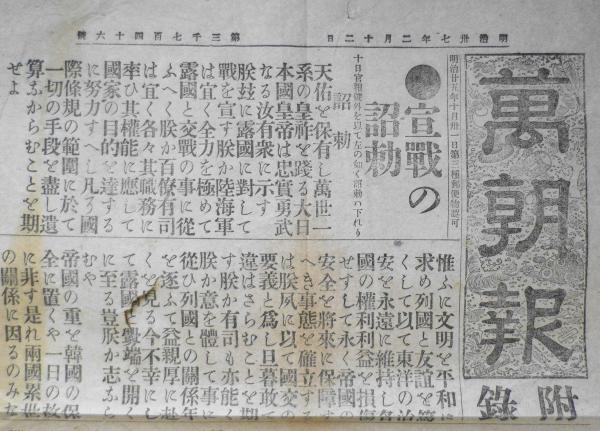 明治卅七年二月十二日
第三千七百四十六號
萬朝報
附錄
明治廿五年十月卅一日第三種郵便物認可
●宣戰の
詔勅
十日官報號外を以て左の如く詔勅の下れり
詔勅
天佑を保有し萬世一
系の皇祚を踐る大日
本國皇帝は忠實勇武
なる汝有衆に示す
朕玆に露國に對して
戰を宣す朕か陸海軍
は宜く全力を極めて
露國と交戰の事に從
ふへく朕か百僚有司
は宜く各々其職務に
率ひ其權能に應して
國家の目的を達する
に努力すへし凡そ國
際條規の範圍に於て
一切の手段を盡し遺
算なからむことを期
せよ
惟ふに文明を平和に
求め列國と友誼を篤
くして以て東洋の治
安を永遠に維持し各
國の權利利益を損傷
せすして永く帝國の
安全を將來に保障す
へき事態を確立する
は朕夙に以て國交の
要義と爲し旦暮敢て
違はさらむことを期
す朕か有司も亦能く
朕か意を體して事に
從ひ列國との關係年
を逐ふて益親厚に赴
くを見る今不幸にし
て露國と釁端を開く
に至る豈朕か志なら
むや
帝國の重を韓國の保
全に置くや一日の故
に非す是れ兩國累世
の關係に因るのみな